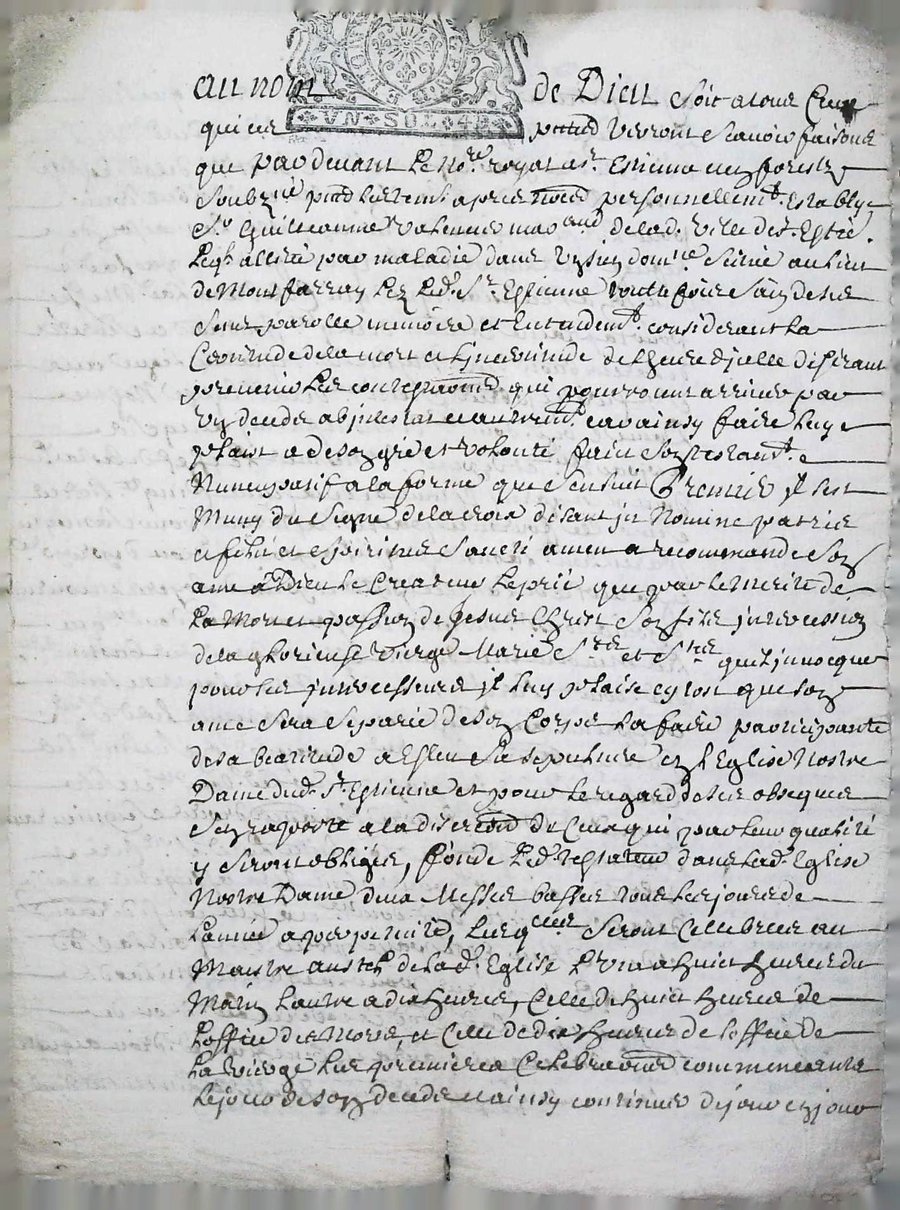 GNAL
VN SOL 4D
au nom de Dieu soit a tous Ceux
qui ces pntes verront scavoir faisons
que par devant Le no.re royal a St. Estienne en forestz
soubz.né personnellemt. Estably
Sr. Guilleaume mar.and delad. ville de St. Esti.
Leql. allitté par maladie dans domlle au lieu
de Monfarray Lez Led. St. Estienne toutte foire sain de ses
sens parolle memoire et Entendemt. considerant La
Certitude de la mort et Lincertitude de Lheure dicelle desirant
prevenir Les qui pourroient arriver par
un deceds abjntestat et autremt. ca ainsy faire Luy
plaist a de son gré et volonté faict son testamt.
Nuncupatif a la forme que sensuit Premier jl sest
Muny du signe de la croix disant jn Nomine patris
et filii et spiritus sancti amen a recommandé son
ame a Dieu le Createur Le prie que par Le merite de
La Mort et passion de Jesus Christ son fils jntercession
de la glorieuse vierge Marie Sts et Stes quil jnvocque
pour ses jntercesseurs jl Luy plaise sy tost que son
ame sera separée de son Corps La faire participante
de sa beatitude a Esleu sa sepulture en l'Eglise Nostre
Dame dud. St. Estienne et pour Le regard de ses obseques
sen raporte a la discretion de Ceux qui par Leur qualité
y seront obligés, fonde Led. testateur dans Lad. Eglise
Nostre Dame deux Messes basses tous Les jours de
Lannée a perpetuité, Lesqlles seront Cellebrées au
Maistre austel de Lad. Eglise Lune a huict heures du
Matin Lautre a dix heures, Celle de huict heures de
Loffice des Morts, et Celle de dix heures de Loffice de
La Vierge Les premieres Celebrations commenceront
Le jour de son deceds et ainsy continuer de jour en jour